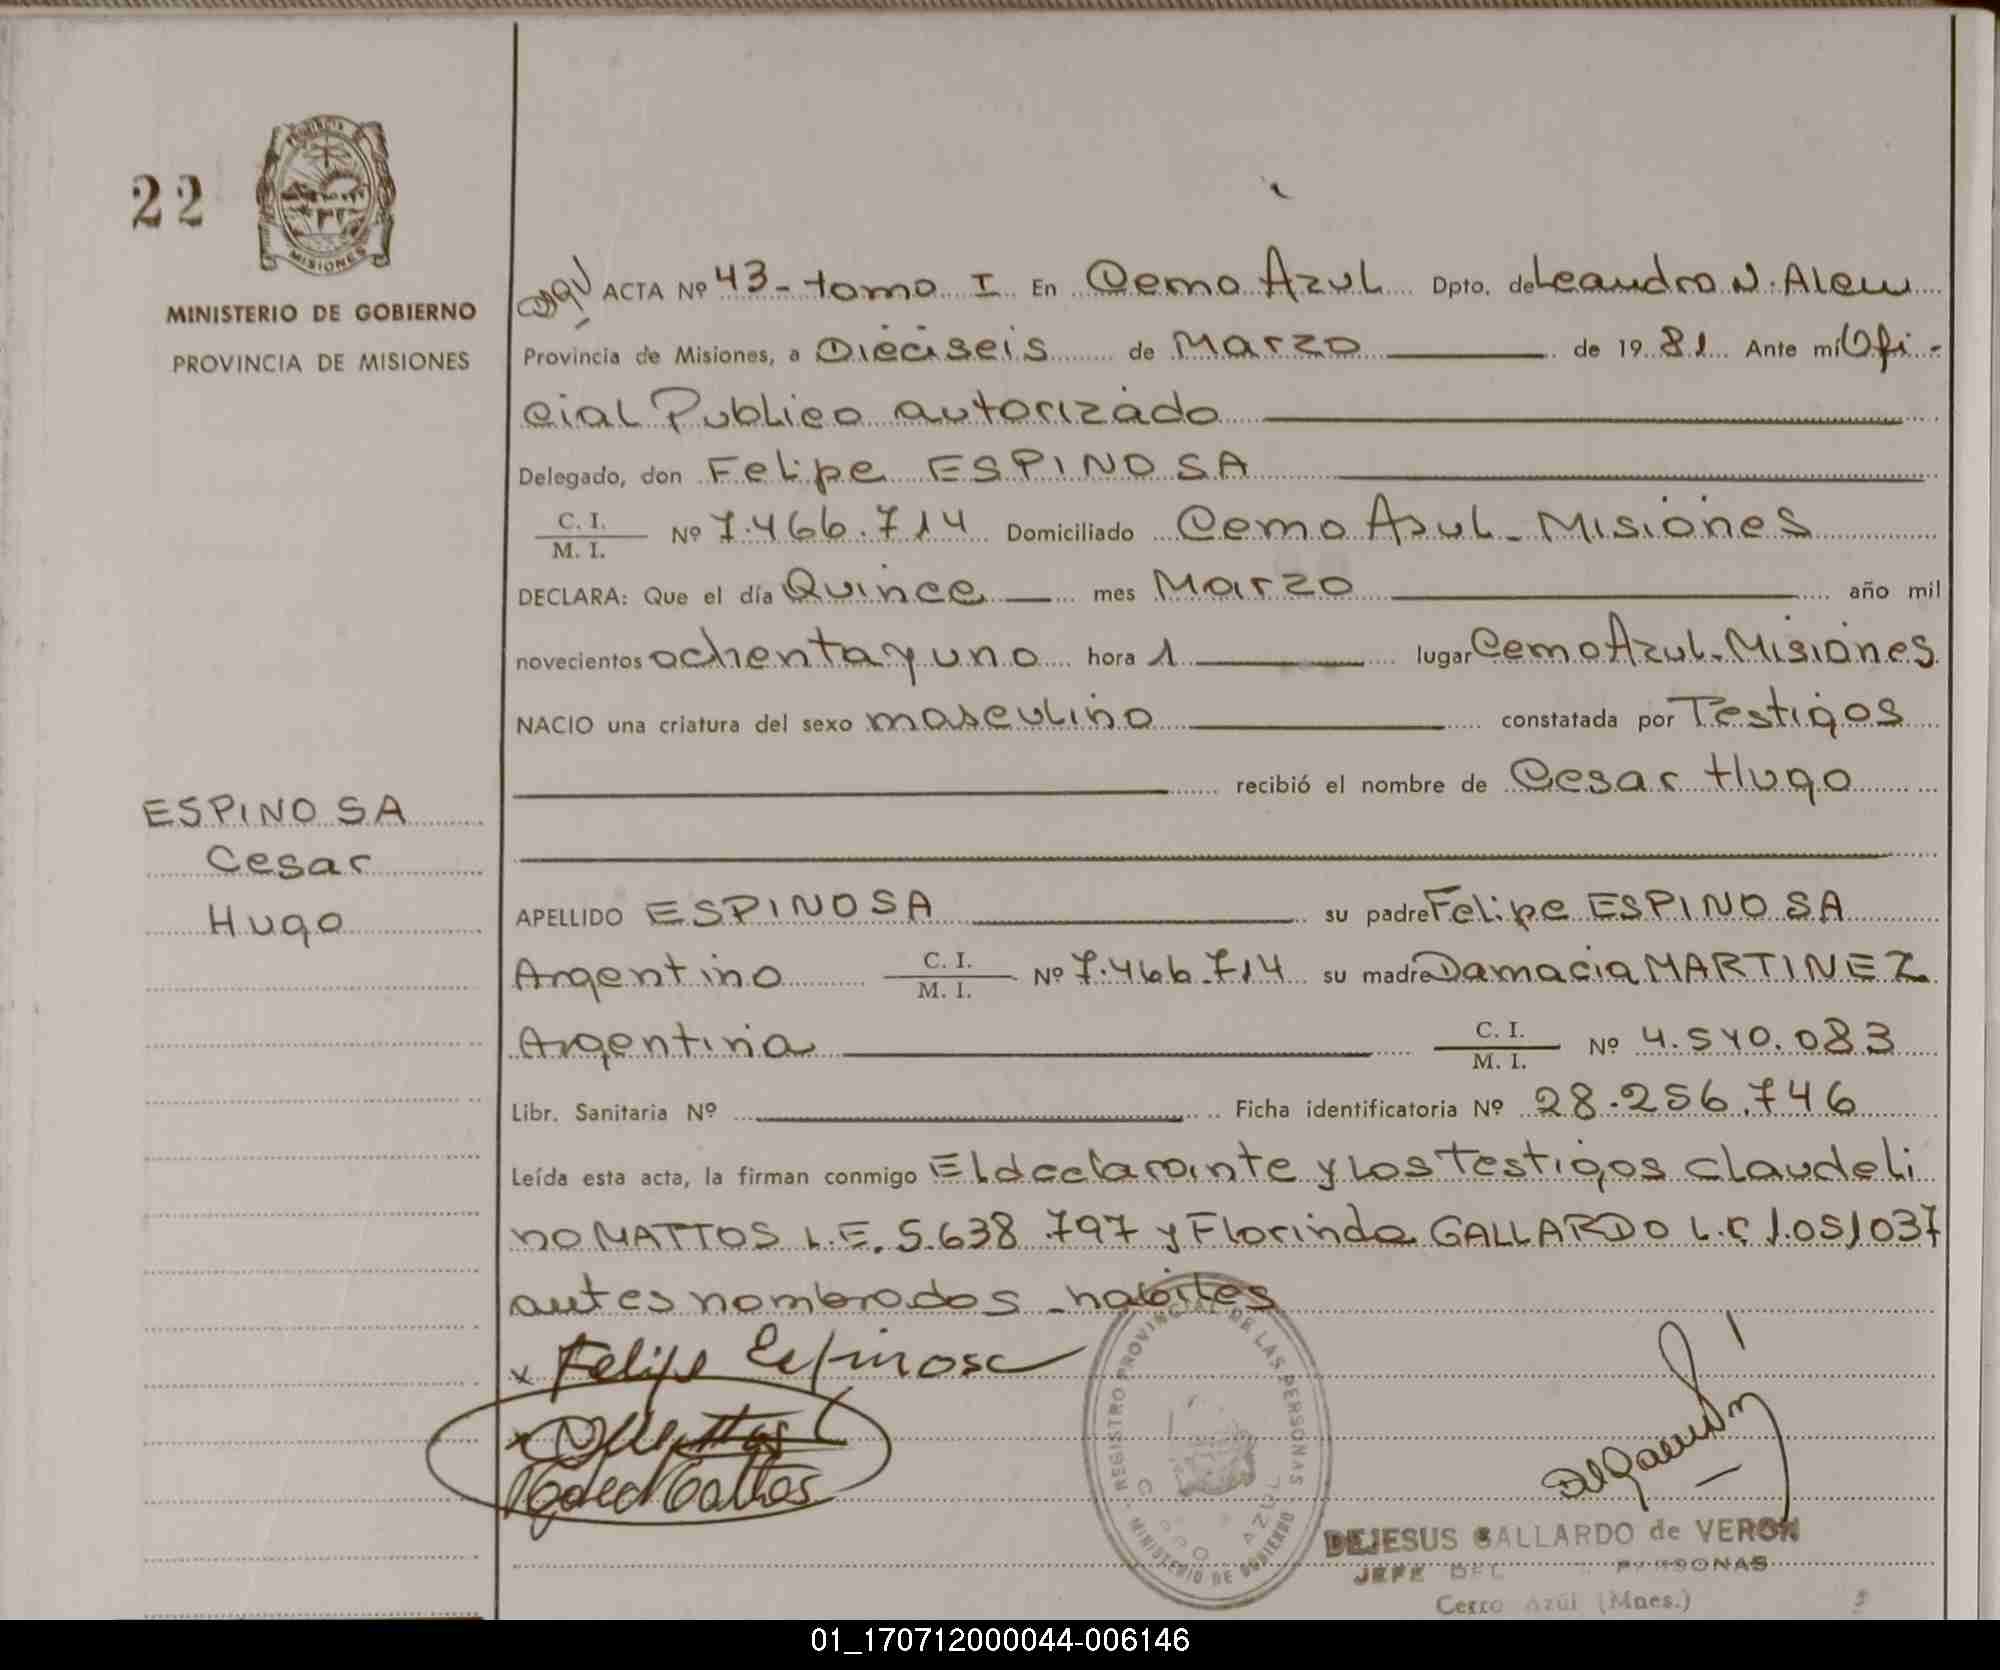 22
PROVINCIA DE
MISIONES
MINISTERIO DE GOBIERNO
PROVINCIA DE MISIONES
ACTA Nº 43 - tomo I En Cerro Azul Dpto. de Leandro N. Alem
Provincia de Misiones, a Dieciseis de Marzo de 19 81 Ante mi Ofi-
cial Publico autorizado
Delegado, don Felipe ESPINOSA
C. I.
M. I. Nº 7.466.714 Domiciliado Cerro Asul - Misiones
DECLARA: Que el día Quince mes Marzo año mil
novecientos ochenta y uno hora 1 lugar Cerro Azul - Misiones
NACIO una criatura del sexo masculino constatada por Testigos
recibió el nombre de Cesar Hugo
ESPINOSA
Cesar
Hugo
APELLIDO ESPINOSA su padre Felipe ESPINOSA
Argentino C. I.
M. I. Nº 7.466.714 su madre Damacia MARTINEZ
Argentina C. I.
M. I. Nº 4.540.083
Libr. Sanitaria Nº Ficha identificatoria Nº 28.256.746
Leída esta acta, la firman conmigo El declarante y los Testigos Claudeli
no MATTOS L.E. 5.638.797 y Florinda GALLARDO L.C 1.051037
antes nombrados - habiles
x Felipe Espinosa
REGISTRO PROVINCIAL DE LAS PERSONAS
MINISTERIO DE GOBIERNO
CERRO AZUL
DEJESUS GALLARDO de VERON
JEFE DEL PERSONAS
Cerro Azúl (Mnes.)
01_170712000044-006146